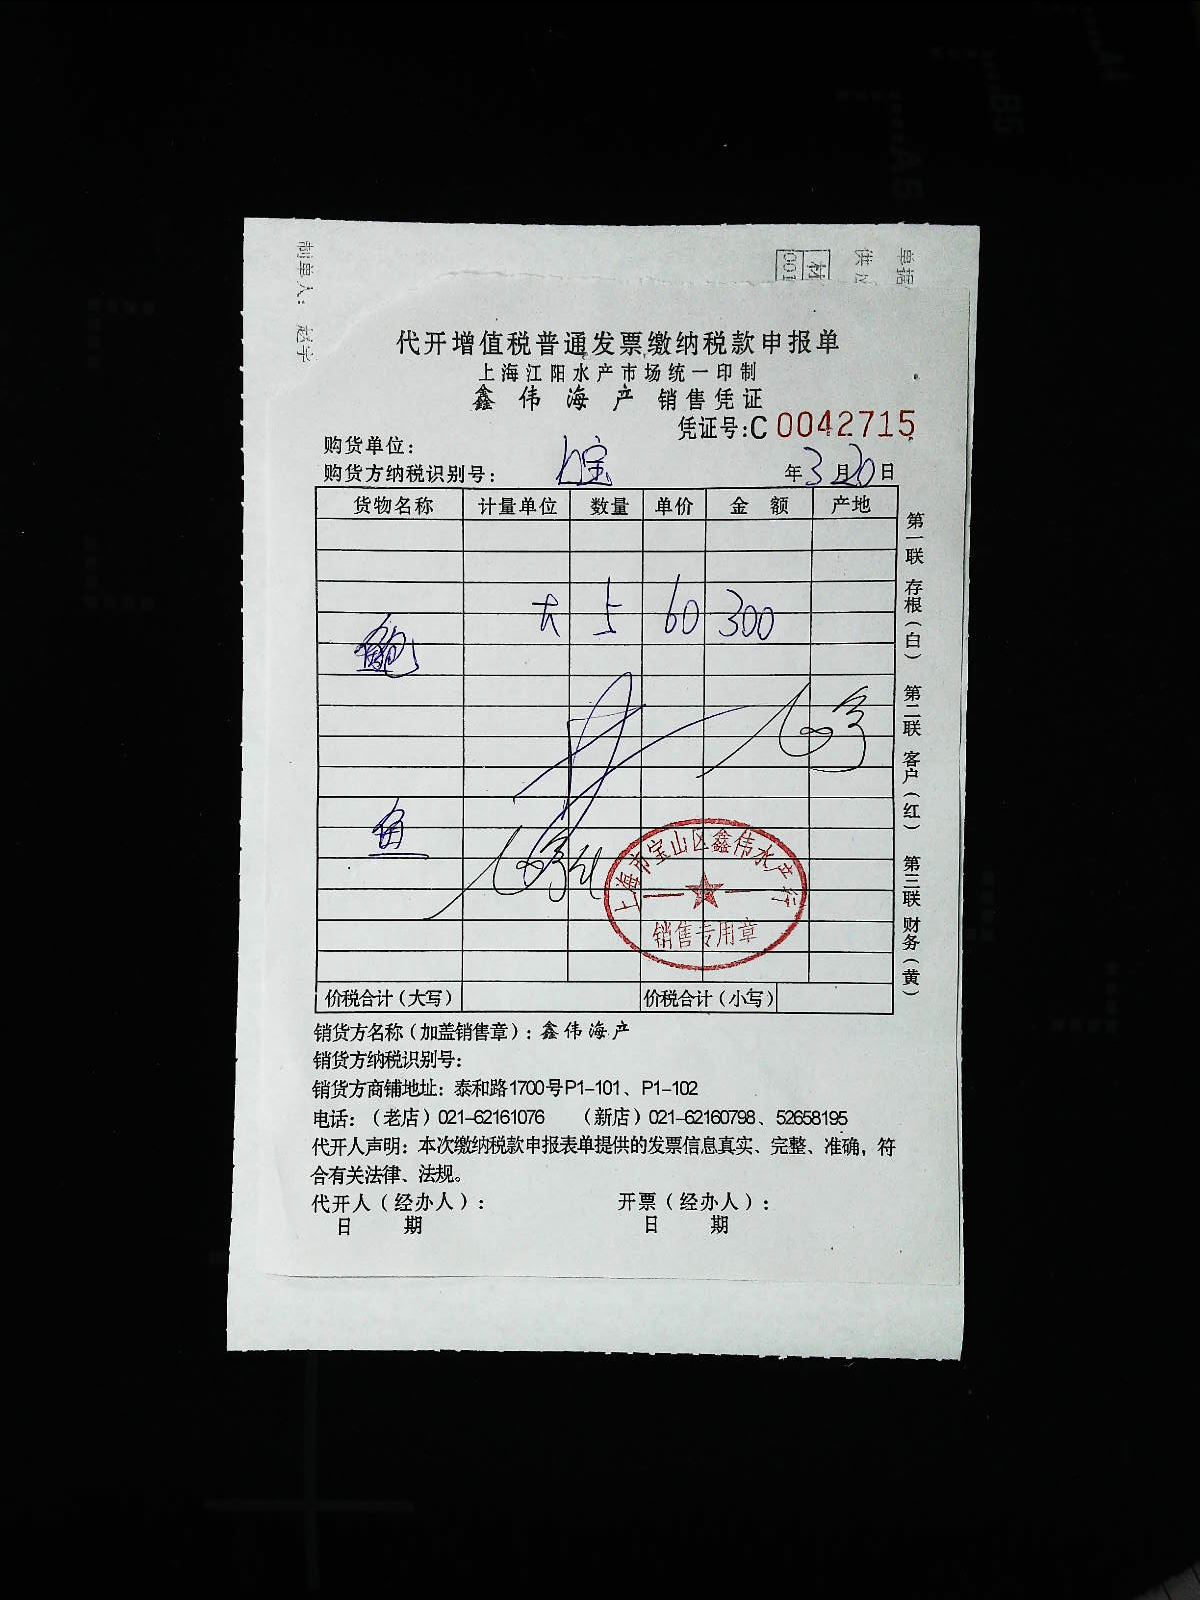 单据
供应
材
001
制单人： 赵宇
代开增值税普通发票缴纳税款申报单
上海江阳水产市场统一印制
鑫伟海产 销售凭证
凭证号:C 0042715
购货单位：
购货方纳税识别号： 年3月20日
货物名称 计量单位 数量 单价 金额 产地
大 5 60 300
鲍
鱼
上海市宝山区鑫伟水产行
销售专用章
价税合计（大写） 价税合计（小写）
第一联 存根（白） 第二联 客户（红） 第三联 财务（黄）
销货方名称（加盖销售章）：鑫伟海产
销货方纳税识别号：
销货方商铺地址：泰和路1700号P1-101、P1-102
电话：（老店）021-62161076 （新店）021-62160798、52658195
代开人声明：本次缴纳税款申报表单提供的发票信息真实、完整、准确，符
合有关法律、法规。
代开人（经办人）： 开票（经办人）：
日 期 日 期